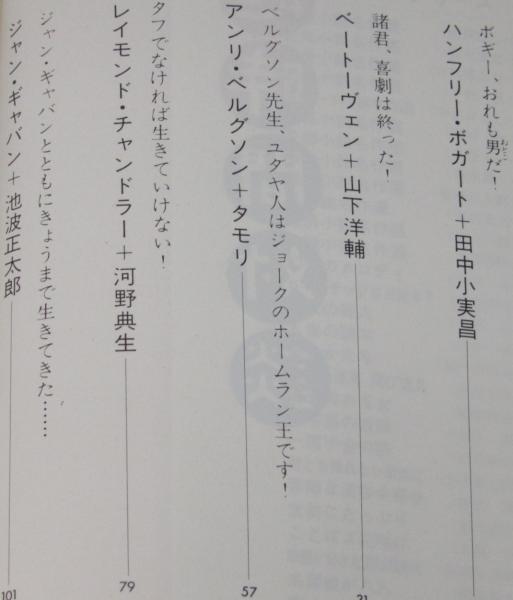 ボギー、おれも男だ！
おとこ
ハンフリー・ボガート＋田中小実昌
諸君、喜劇は終った！
ベートーヴェン＋山下洋輔
31
ベルグソン先生、ユダヤ人はジョークのホームラン王です！
アンリ・ベルグソン＋タモリ
57
タフでなければ生きていけない！
レイモンド・チャンドラー＋河野典生
79
ジャン・ギャバンとともにきょうまで生きてきた……
ジャン・ギャバン＋池波正太郎
101